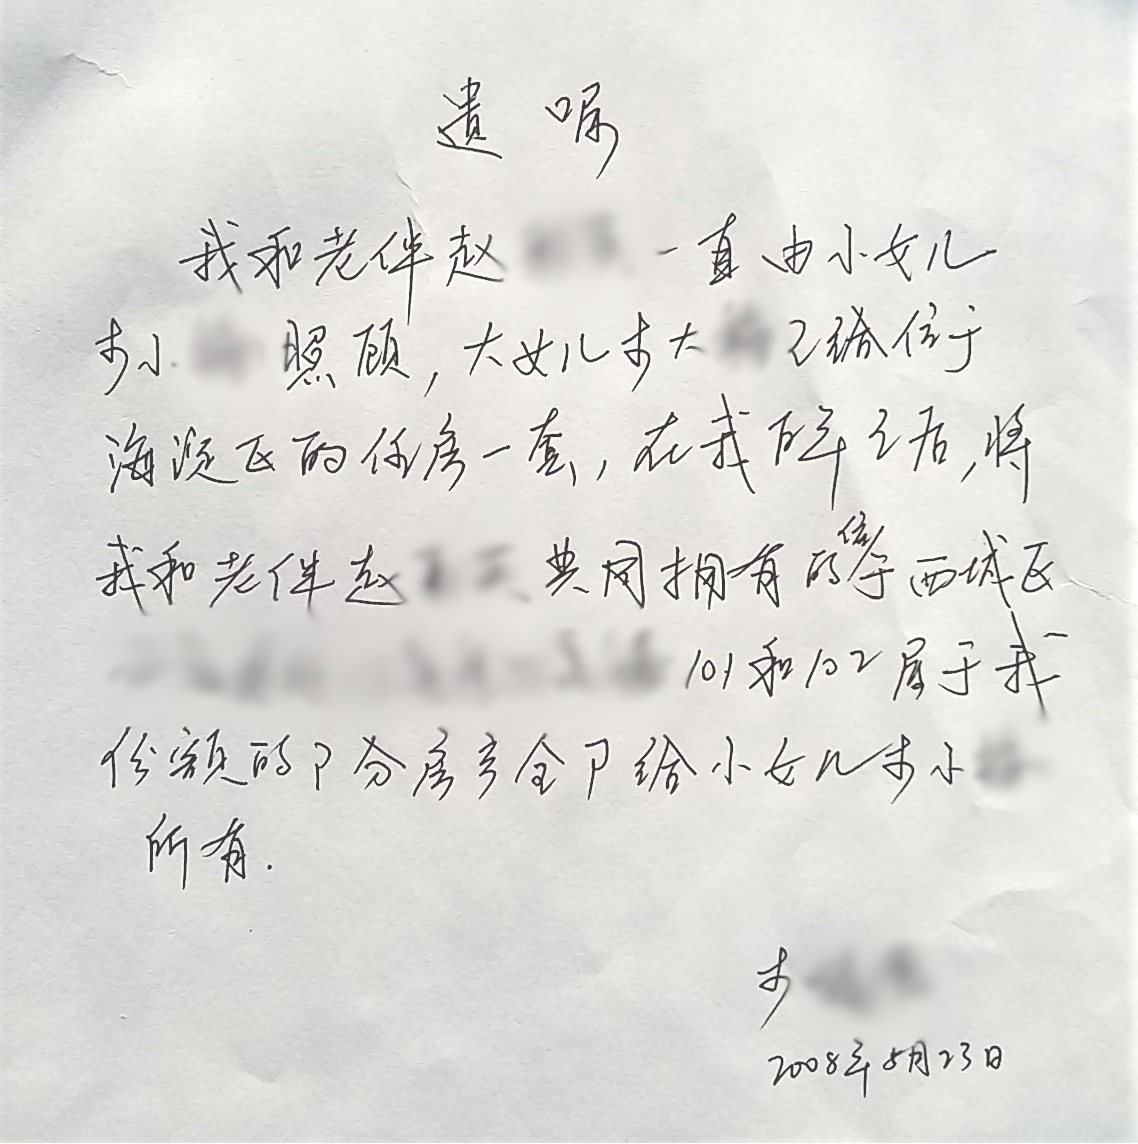 遗嘱
我和老伴赵 一直由小女儿
小 照顾,大女儿 大 已 位于
海淀区的住房一套,在我百年之后,将
我和老伴赵 共同拥有的位于西城区
101和102属于我
份额的部分房产全部给小女儿 小
所有.
2008年5月23日